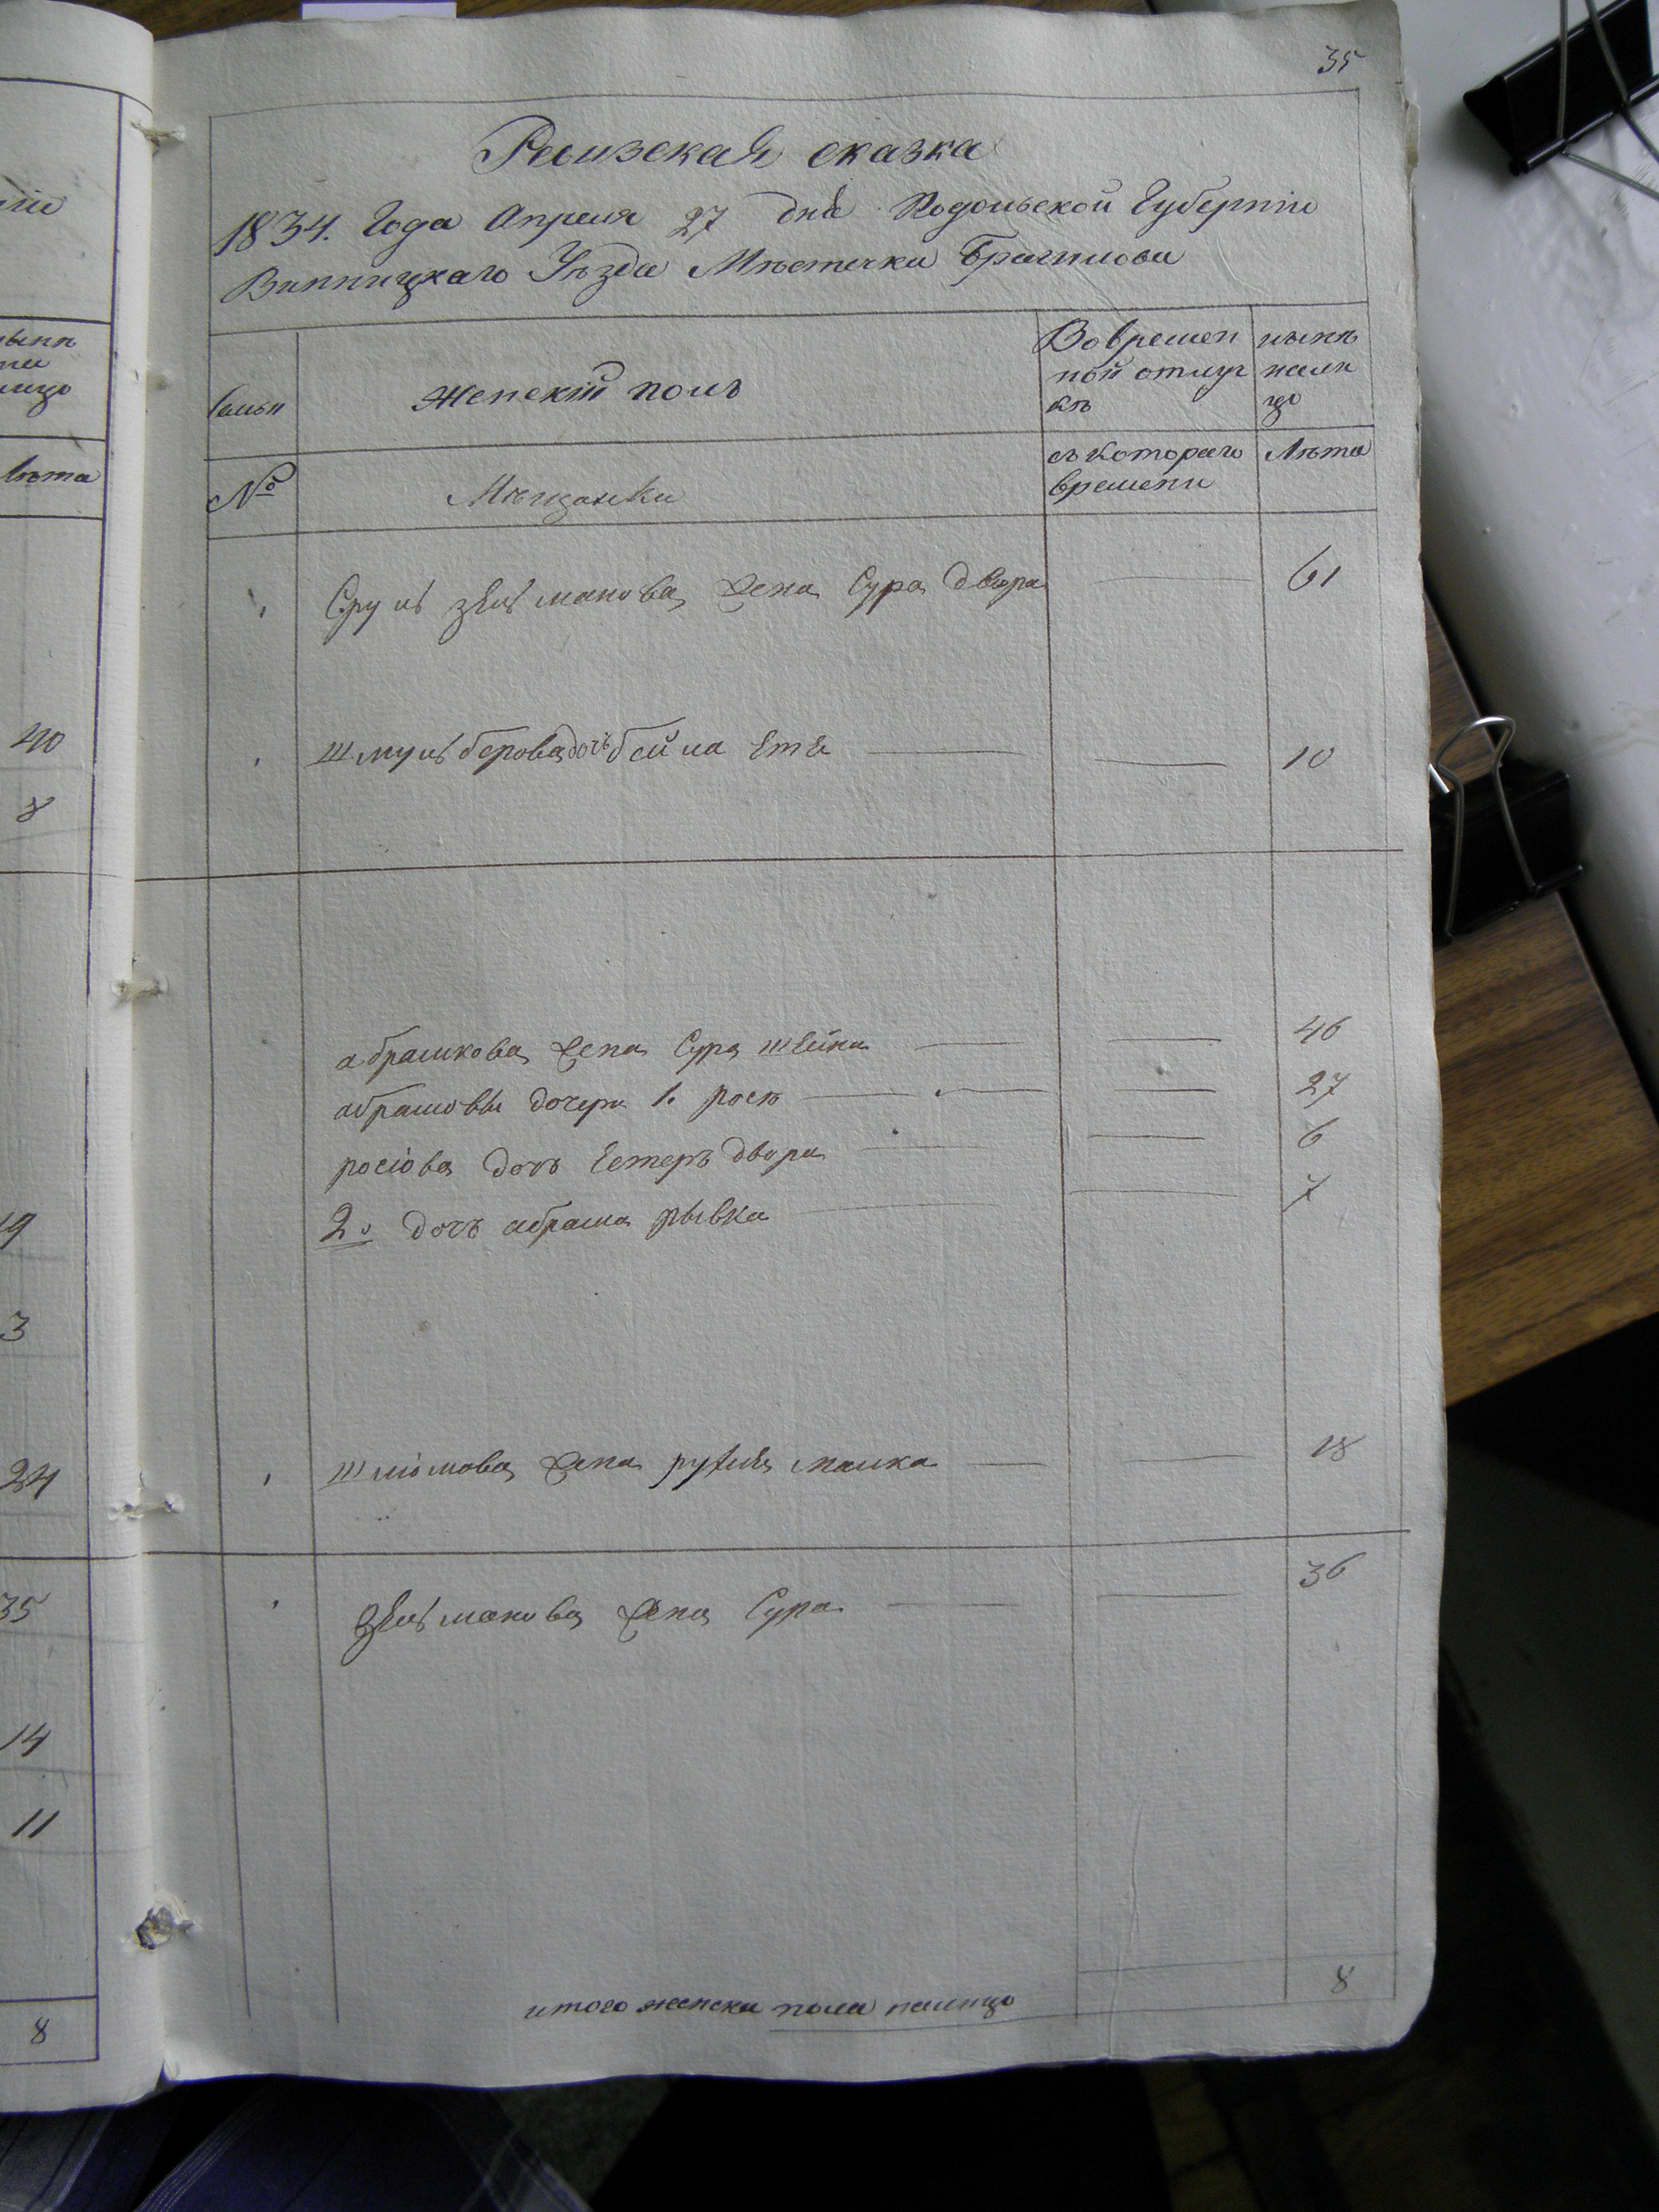 35
Ревизская сказка
1834. Года Апреля 27 дня Подольской Губернiи
Винницкаго Уѣзда Мѣстечка Браилова
Женскiй полъ
Вовремен
ной отлуч
кѣ
нынѣ
нали
цо
Семьи
съ Котораго
времени
Лѣта
№
Мѣщанки
Сруль зельманова жена Сура двора 61
Шмуль берова дочь бейла Етя 10
абрашкова жена Сура шейна 46
абрашовы дочери 1. рося 27
росiова дочь Естеръ двора 6
2я дочь абраша рывка 7
Шлiомова жена рухля малка 18
Зельманова жена Сура 36
итого женска пола налицо 8
нынѣ
лицо
Лѣта
40
8
19
3
24
35
14
11
8